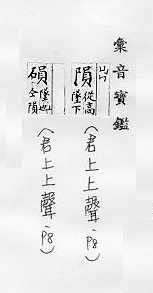 彙音寶鑑
隕 從高墜下
（君上上聲．P8）
磒 墜也．仝隕
（君上上聲．P8）